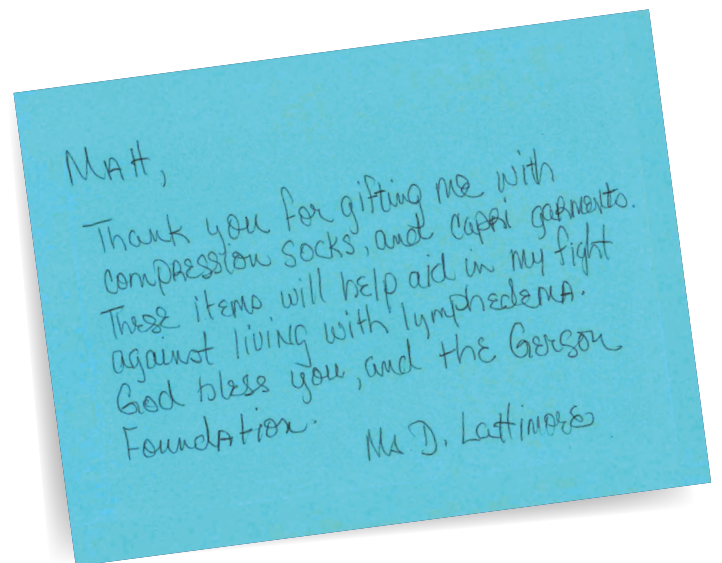 Matt,
Thank you for gifting me with
compression socks, and capri garments.
These items will help aid in my fight
against living with lymphedema.
God bless you, and the Gerson
Foundation.
Ms D. Lattimore